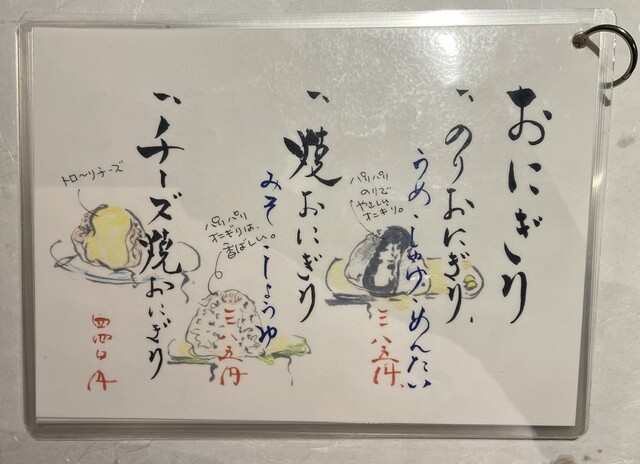 おにぎり
一、のりおにぎり
うめ・しゃけ・めんたい
三八五円
パリパリ
のりで
やさしい
オニギリ。
一、焼おにぎり
みそ・しょうゆ
三八五円
パリパリ
オニギリは、
香ばしい。
一、チーズ焼おにぎり
四四〇円
トロ〜リチーズ